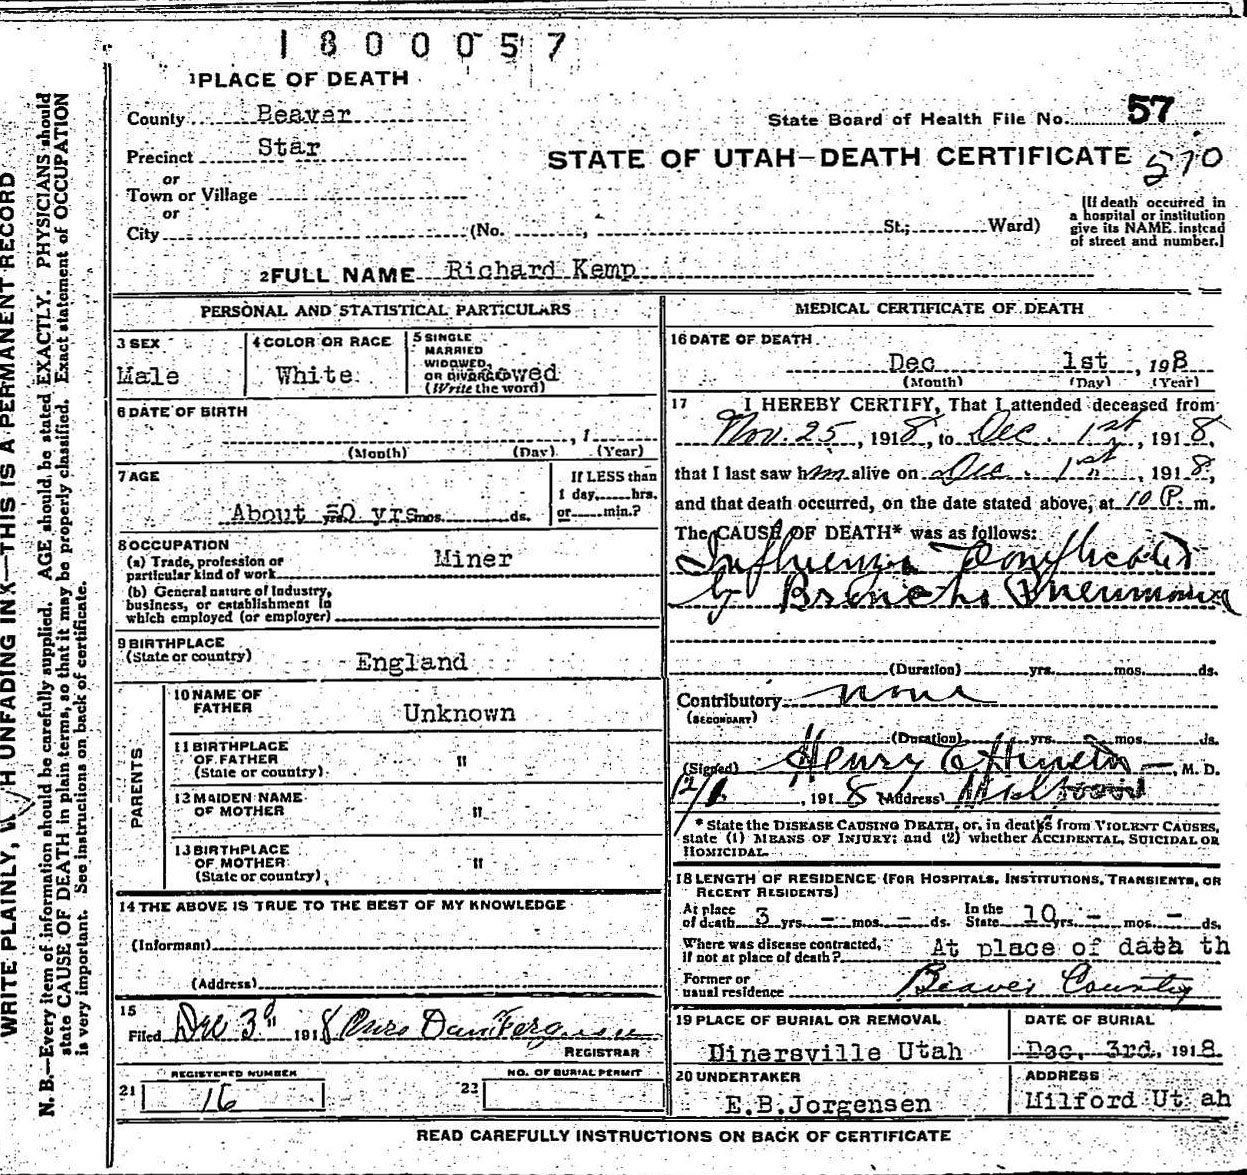 1800057
1 PLACE OF DEATH
County Beaver
State Board of Health File No. 57
Precinct Star
STATE OF UTAH—DEATH CERTIFICATE 570
or
Town or Village
or
City (No. , St.; Ward)
[If death occurred in
a hospital or institution
give its NAME instead
of street and number.]
2 FULL NAME Richard Kemp
PERSONAL AND STATISTICAL PARTICULARS
3 SEX
Male
4 COLOR OR RACE
White
5 SINGLE
MARRIED
WIDOWED,
OR DIVORCED wed
(Write the word)
6 DATE OF BIRTH
, 1
(Month) (Day) (Year)
7 AGE
If LESS than
1 day, hrs.
or min.?
About 50 yrs mos. ds.
8 OCCUPATION
(a) Trade, profession or
particular kind of work Miner
(b) General nature of Industry,
business, or establishment in
which employed (or employer)
9 BIRTHPLACE
(State or country) England
PARENTS
10 NAME OF
FATHER Unknown
11 BIRTHPLACE
OF FATHER "
(State or country)
12 MAIDEN NAME
OF MOTHER "
13 BIRTHPLACE
OF MOTHER "
(State or country)
14 THE ABOVE IS TRUE TO THE BEST OF MY KNOWLEDGE
(Informant)
(Address)
15
Filed Dec 3d, 1918 Mrs Dan Ferguson
REGISTRAR
21 REGISTERED NUMBER
16
22 NO. OF BURIAL PERMIT
MEDICAL CERTIFICATE OF DEATH
16 DATE OF DEATH
Dec 1st, 198
(Month) (Day) (Year)
17 I HEREBY CERTIFY, That I attended deceased from
Nov. 25, 1918, to Dec. 1st, 1918,
that I last saw him alive on Dec. 1st, 1918,
and that death occurred, on the date stated above, at 10 P. m.
The CAUSE OF DEATH* was as follows:
Influenza Complicated
by Broncho Pneumonia
(Duration) yrs. mos. ds.
Contributory none
(SECONDARY)
(Duration) yrs. mos. ds.
(Signed) Henry C , M. D.
12/1, 1918 (Address) Milford
* State the DISEASE CAUSING DEATH, or, in deaths from VIOLENT CAUSES,
state (1) MEANS OF INJURY; and (2) whether ACCIDENTAL, SUICIDAL OR
HOMICIDAL.
18 LENGTH OF RESIDENCE (FOR HOSPITALS, INSTITUTIONS, TRANSIENTS, OR
RECENT RESIDENTS)
At place
of death 3 yrs. - mos. - ds. In the
State 10 yrs. - mos. - ds.
Where was disease contracted,
if not at place of death? At place of death th
Former or
usual residence Beaver County
19 PLACE OF BURIAL OR REMOVAL
Minersville Utah
DATE OF BURIAL
Dec. 3rd, 1918
20 UNDERTAKER
E.B.Jorgensen
ADDRESS
Milford Ut ah
READ CAREFULLY INSTRUCTIONS ON BACK OF CERTIFICATE
WRITE PLAINLY, WITH UNFADING INK—THIS IS A PERMANENT RECORD
N. B.—Every item of information should be carefully supplied. AGE should be stated EXACTLY. PHYSICIANS should
state CAUSE OF DEATH in plain terms, so that it may be properly classified. Exact statement of OCCUPATION
is very important. See instructions on back of certificate.